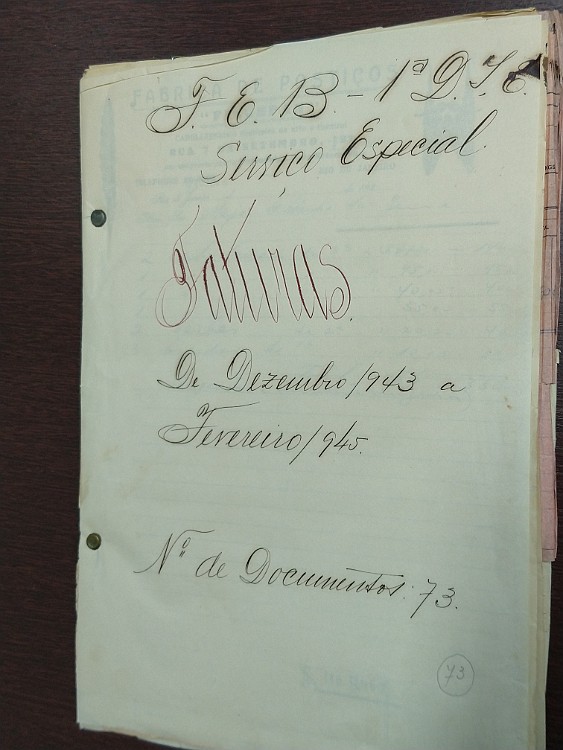 F. E. B. - 1ª D. I. E.
Serviço Especial.
Faturas.
De Dezembro/943 a
Fevereiro/945.
Nº de Documentos: 73.
73